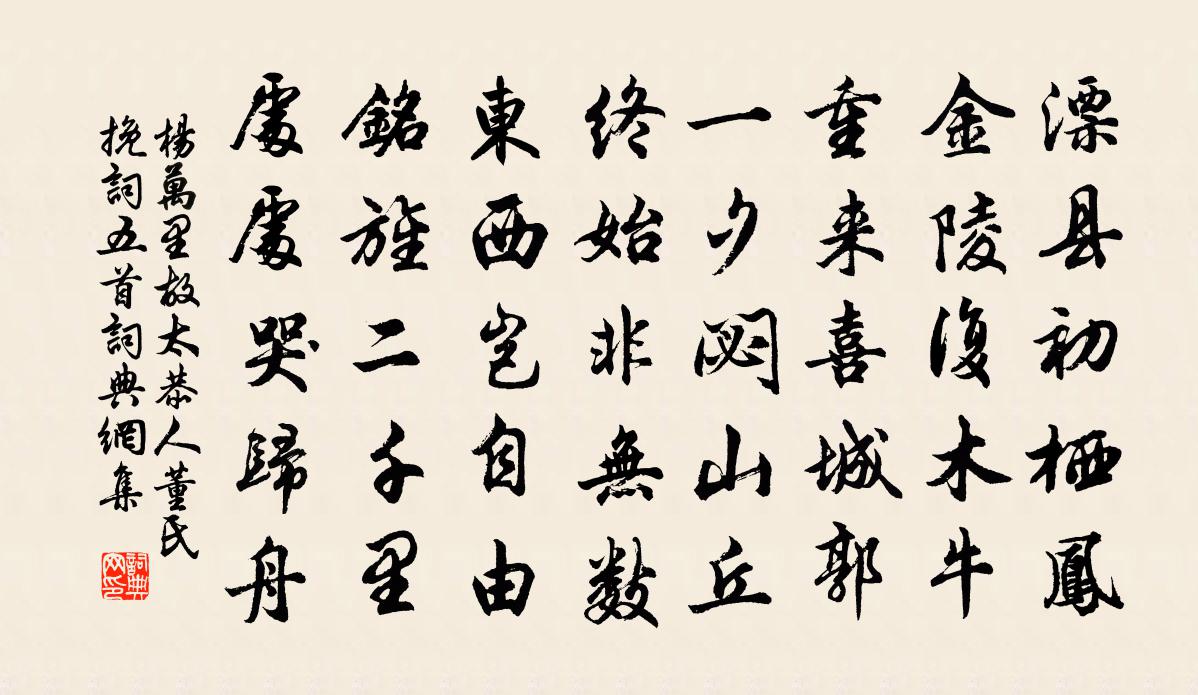 漂县初栖鳳
金陵復木牛
重来喜城郭
一夕閟山丘
終始非無數
東西豈自由
銘旌二千里
處處哭歸舟
楊萬里故太恭人董氏
挽詞五首詞典網集
詞典网印